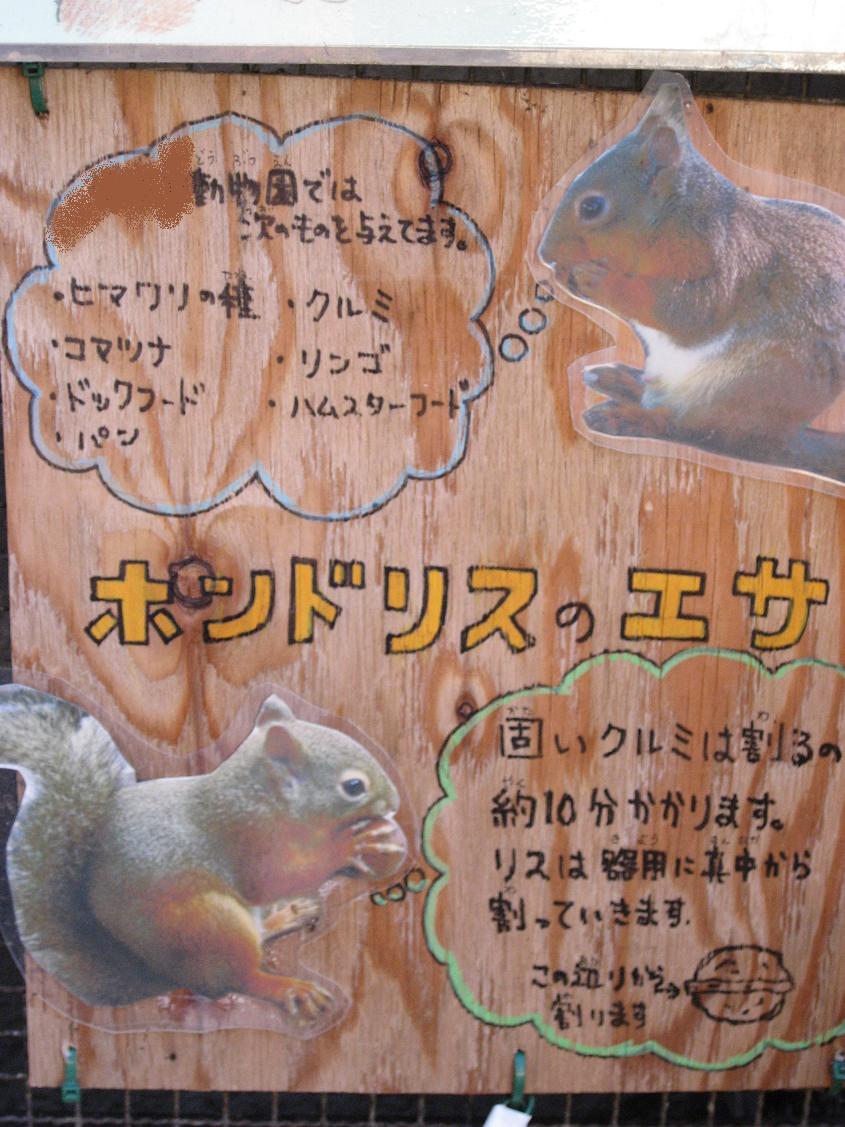 動物園では
次のものを与えてます。
・ヒマワリの種 ・クルミ
・コマツナ ・リンゴ
・ドックフード ・ハムスターフード
・パン
ホンドリスのエサ
固いクルミは割るの
約10分かかります。
リスは器用に真中から
割っていきます。
この辺りから→
割ります